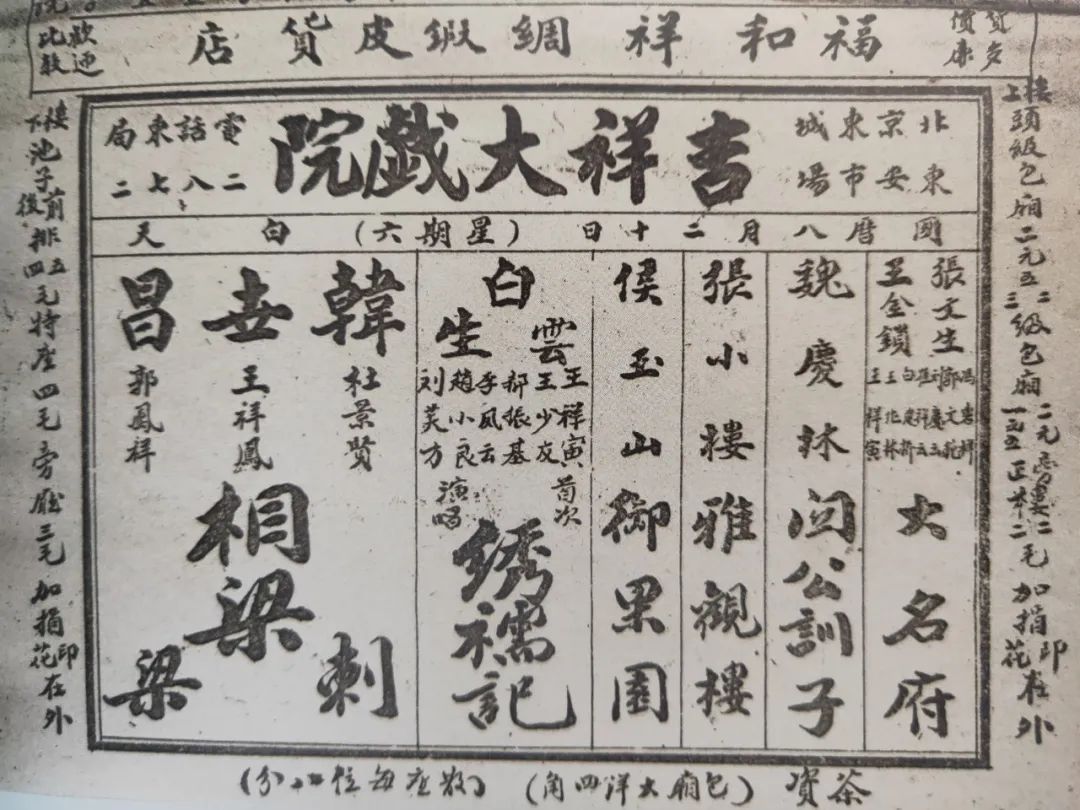 貨多價廉
福和祥綢緞皮貨店
歡迎比較
北京東城
東安市場
吉祥大戲院
電話東局
二八七二
國曆八月二十日(星期六)白天
張文生
王金鎖
大名府
魏慶林
関公訓子
張小樓
雅觀樓
侯玉山
御果園
白雲生
王祥寅
王少友
郝振基
李凤云
趙小良
刘英方
首次演唱
绣襦記
韓世昌
杜景賢
王祥鳳
郭鳳祥
相梁
刺梁
樓上頭級包廂二元五二級包廂二元三級包廂一元五正樓二毛加捐印花在外
樓下池子前排五後排四毛特座四毛旁廳三毛加捐印花在外
茶資(包廂大洋四角)(散座每位十二分)